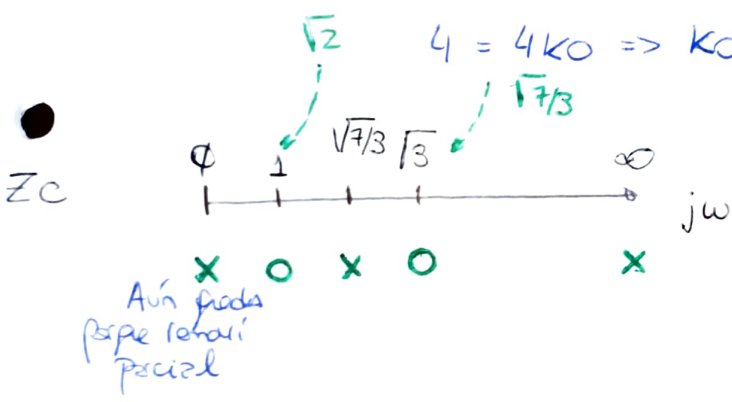 √2
4 = 4K0 => K0
√7/3
Zc
0 1 √7/3 √3 ∞
jω
X O X O X
Aún queda
porque removí
parcial